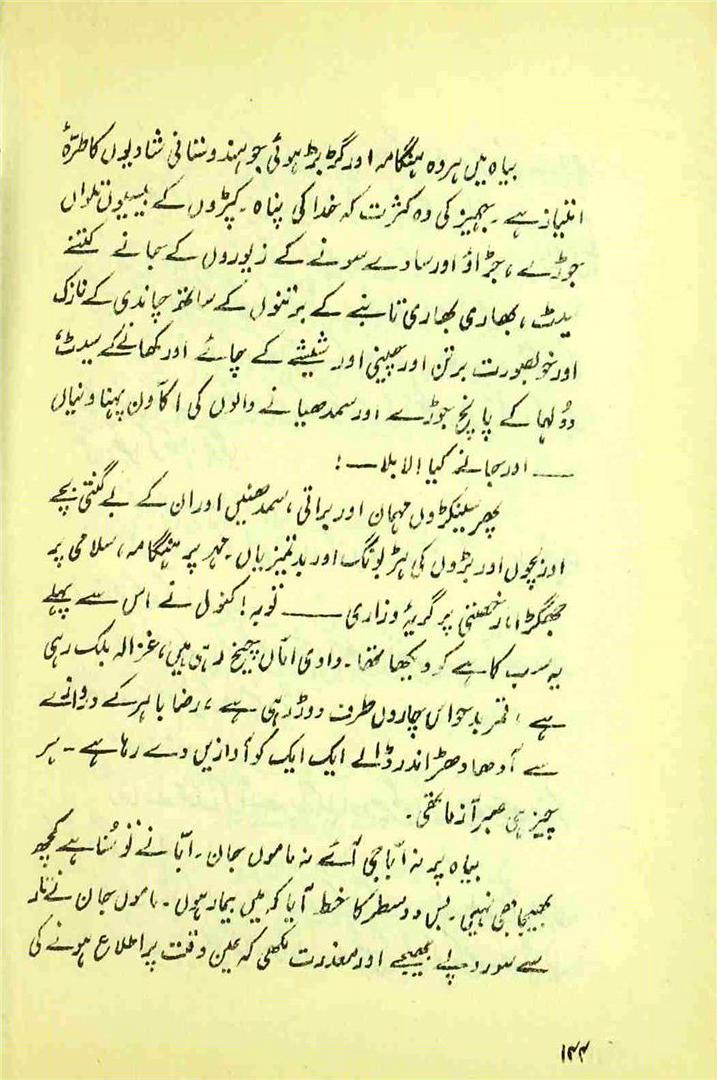 بیاہ میں ہر وہ ہنگامہ اور گڑبڑ ہوئی جو ہندوستانی شادیوں کا طرۂ
امتیاز ہے ۔ جہیز کی وہ کثرت کہ خدا کی پناہ ۔ کپڑوں کے بیسیوں تلواں
جوڑے ، جڑاؤ اور سادے سونے کے زیوروں کے سجانے کتنے
سیٹ ، بھاری بھاری تانبے کے برتنوں کے ساتھ چاندی کے نازک
اور خوبصورت برتن اور چینی اور شیشے کے چائے اور کھانے کے سیٹ ،
دولہا کے پانچ جوڑے اور سمدھیانے والوں کی اکاون پہناونیاں
ــــ اور جانے کیا الا بلا ــــ !
پھر سینکڑوں مہمان اور براتی ، سمدھنیں اور ان کے بے گنتی بچے
اور بچوں اور بڑوں کی ہڑبونگ اور بدتمیزیاں ۔ مہر پر ہنگامہ ، سلامی پر
جھگڑا ، رخصتی پر گریۂ وزاری ـــــــ توبہ ! کنول نے اس سے پہلے
یہ سب کاہے کو دیکھا تھا ۔ دادی اماں چیخ رہی ہیں ، غزالہ بلک رہی
ہے ، قمر بدحواس چاروں طرف دوڑ رہی ہے ، رضا باہر کے دروازے
سے آدھا دھڑ اندر ڈالے ایک ایک کو آوازیں دے رہا ہے ۔ ہر
چیز ہی صبر آزما تھی ۔
بیاہ پر نہ ابا جی آئے نہ ماموں جان ۔ ابا نے تو سُنا ہے کچھ
بھیجا بھی نہیں ۔ بس دو سطر کا خط آیا کہ میں بیمار ہوں ۔ ماموں جان نے تار
سے سو روپے بھیجے اور معذرت لکھی کہ عین وقت پر اطلاع ہونے کی
۱۴۴